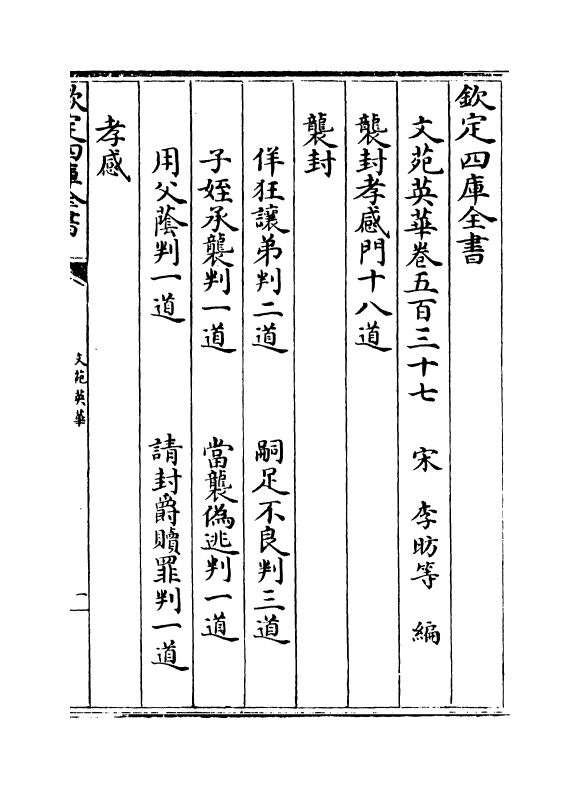 欽定四庫全書
文苑英華卷五百三十七　宋　李昉等　編
襲封孝感門十八道
襲封
佯狂讓弟判二道　嗣足不良判三道
子姪承襲判一道　當襲偽逃判一道
用父蔭判一道　請封爵贖罪判一道
孝感
欽定四庫全書
文苑英華
一